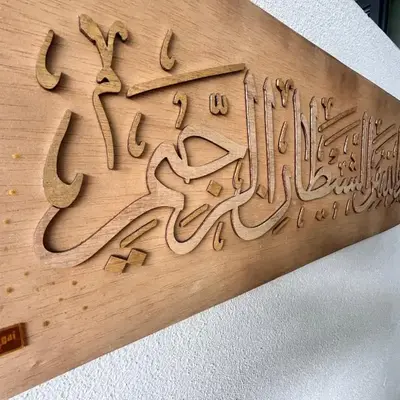 من الشيطان الرجيم